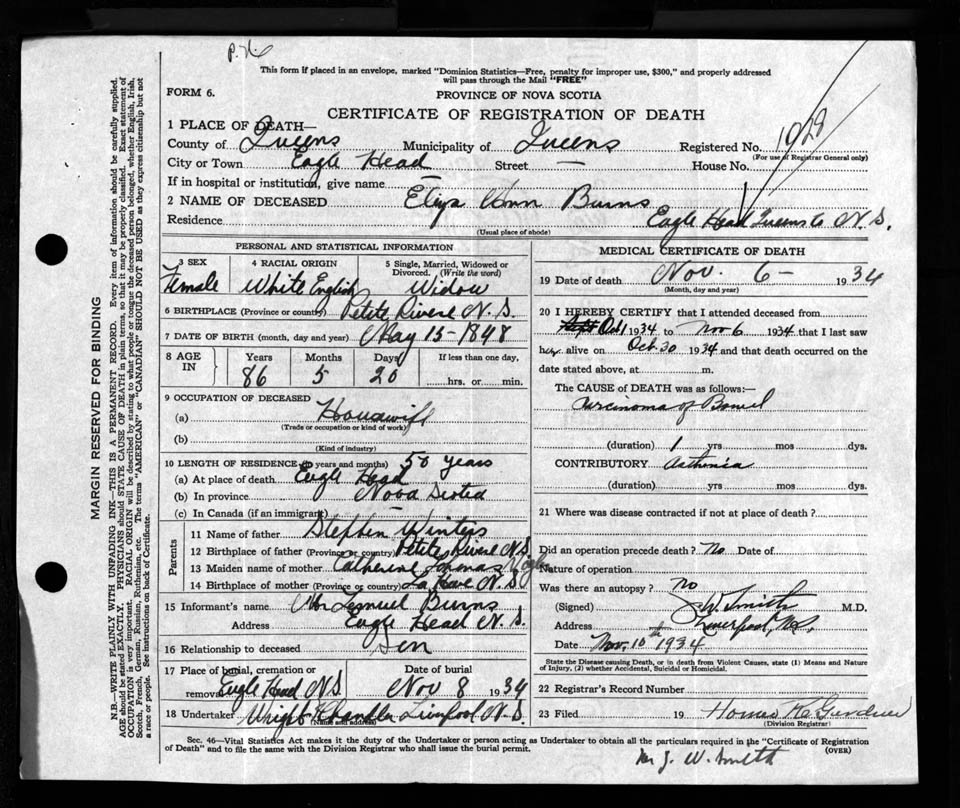 P.N.
This form if placed in an envelope, marked "Dominion Statistics—Free, penalty for improper use, $300," and properly addressed
will pass through the Mail "FREE"
FORM 6.
PROVINCE OF NOVA SCOTIA
CERTIFICATE OF REGISTRATION OF DEATH
1 PLACE OF DEATH—
County of Queens Municipality of Queens Registered No. 1928
(For use of Registrar General only)
City or Town Eagle Head Street — House No.
If in hospital or institution, give name —
2 NAME OF DECEASED Eliza Ann Burns
Residence Eagle Head Queens Co N.S.
(Usual place of abode)
PERSONAL AND STATISTICAL INFORMATION
3 SEX 4 RACIAL ORIGIN 5 Single, Married, Widowed or
Divorced. (Write the word)
Female White English Widow
6 BIRTHPLACE (Province or country) Petite Riviere N.S.
7 DATE OF BIRTH (month, day and year) May 15-1848
8 AGE IN Years Months Days If less than one day,
86 5 20 hrs. or min.
9 OCCUPATION OF DECEASED
(a) Housewife
(Trade or occupation or kind of work)
(b)
(Kind of industry)
10 LENGTH OF RESIDENCE (in years and months) 50 years
(a) At place of death Eagle Head
(b) In province Nova Scotia
(c) In Canada (if an immigrant) —
Parents
11 Name of father Stephen Winters
12 Birthplace of father (Province or country) Petite Riviere N.S.
13 Maiden name of mother Catherine
14 Birthplace of mother (Province or country) La Have N.S.
15 Informant's name Mr Lemuel Burns
Address Eagle Head N.S.
16 Relationship to deceased Son
17 Place of burial, cremation or Date of burial
removal Eagle Head N.S. Nov 8 1934
18 Undertaker Wright Chandler Liverpool N.S.
MEDICAL CERTIFICATE OF DEATH
19 Date of death Nov. 6 — 1934
(Month, day and year)
20 I HEREBY CERTIFY that I attended deceased from
Oct 1 1934 to Nov 6 1934 that I last saw
her alive on Oct 30 1934 and that death occurred on the
date stated above, at m.
The CAUSE of DEATH was as follows:—
Carcinoma of Bowel
(duration) 1 yrs mos dys.
CONTRIBUTORY Asthenia
(duration) yrs mos dys.
21 Where was disease contracted if not at place of death?
Did an operation precede death? No Date of
Nature of operation
Was there an autopsy? No
(Signed) J. W. Smith M.D.
Address Liverpool, N.S.
Date Nov. 10th 1934
State the Disease causing Death, or in death from Violent Causes, state (1) Means and Nature
of Injury, (2) whether Accidental, Suicidal or Homicidal.
22 Registrar's Record Number
23 Filed 19 Homer
(Division Registrar)
Sec. 46—Vital Statistics Act makes it the duty of the Undertaker or person acting as Undertaker to obtain all the particulars required in the "Certificate of Registration
of Death" and to file the same with the Division Registrar who shall issue the burial permit. (OVER)
J. W. Smith
MARGIN RESERVED FOR BINDING
N.B.—WRITE PLAINLY WITH UNFADING INK—THIS IS A PERMANENT RECORD. Every item of information should be carefully supplied.
AGE should be stated EXACTLY. PHYSICIANS should STATE CAUSE OF DEATH in plain terms, so that it may be properly classified. Exact statement of
OCCUPATION is very important. RACIAL ORIGIN will be described by stating to what people or tongue the deceased person belonged, whether English, Irish,
Scotch, French, German, Russian, Ruthenian, etc. The terms "AMERICAN" or "CANADIAN" SHOULD NOT BE USED as they express citizenship but not
a race or people. See instructions on back of Certificate.